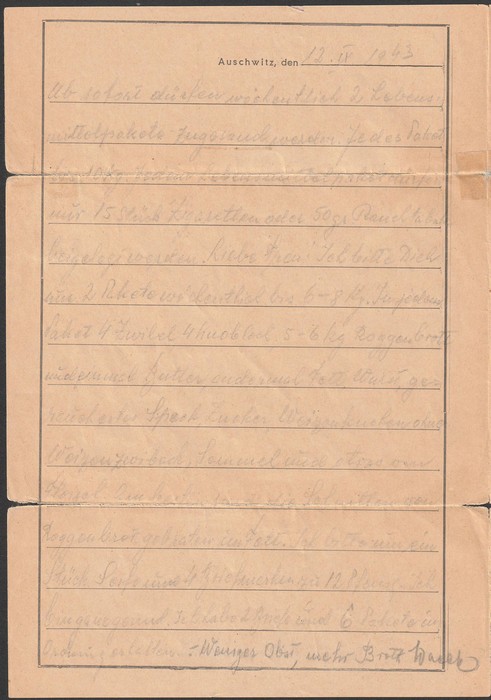 Auschwitz, den 12. IV 1943
Ab sofort dürfen wöchentlich 2 Lebens-
mittelpakete werden. Jedes Paket
Lebensmittelpaket dürfen
nur 15 Stück Zigaretten oder 50 gr Rauchtabak
beigelegt werden. Liebe Frau! Ich bitte Dich
um 2 Pakete wöchentlich bis 6-8 kg. In jedem
Paket 4 Zwibel 4 Knobloch 5-6 kg Roggenbrott
und einmal Butter andermal Fett, Wurst, ge-
reucherte Speck, Zucker, Weizenkuchen oder
Weizenzwiback, Semmel und etwas
Schnitten von
Roggenbrot gebraten im Fett. Ich bitte um ein
Stück Seife und 4 Briefmarken zu 12 Ich
bin gesund, Ich habe Briefe und 6 Pakete in
Ordnung erhalten. - Weniger Obst, mehr Brott